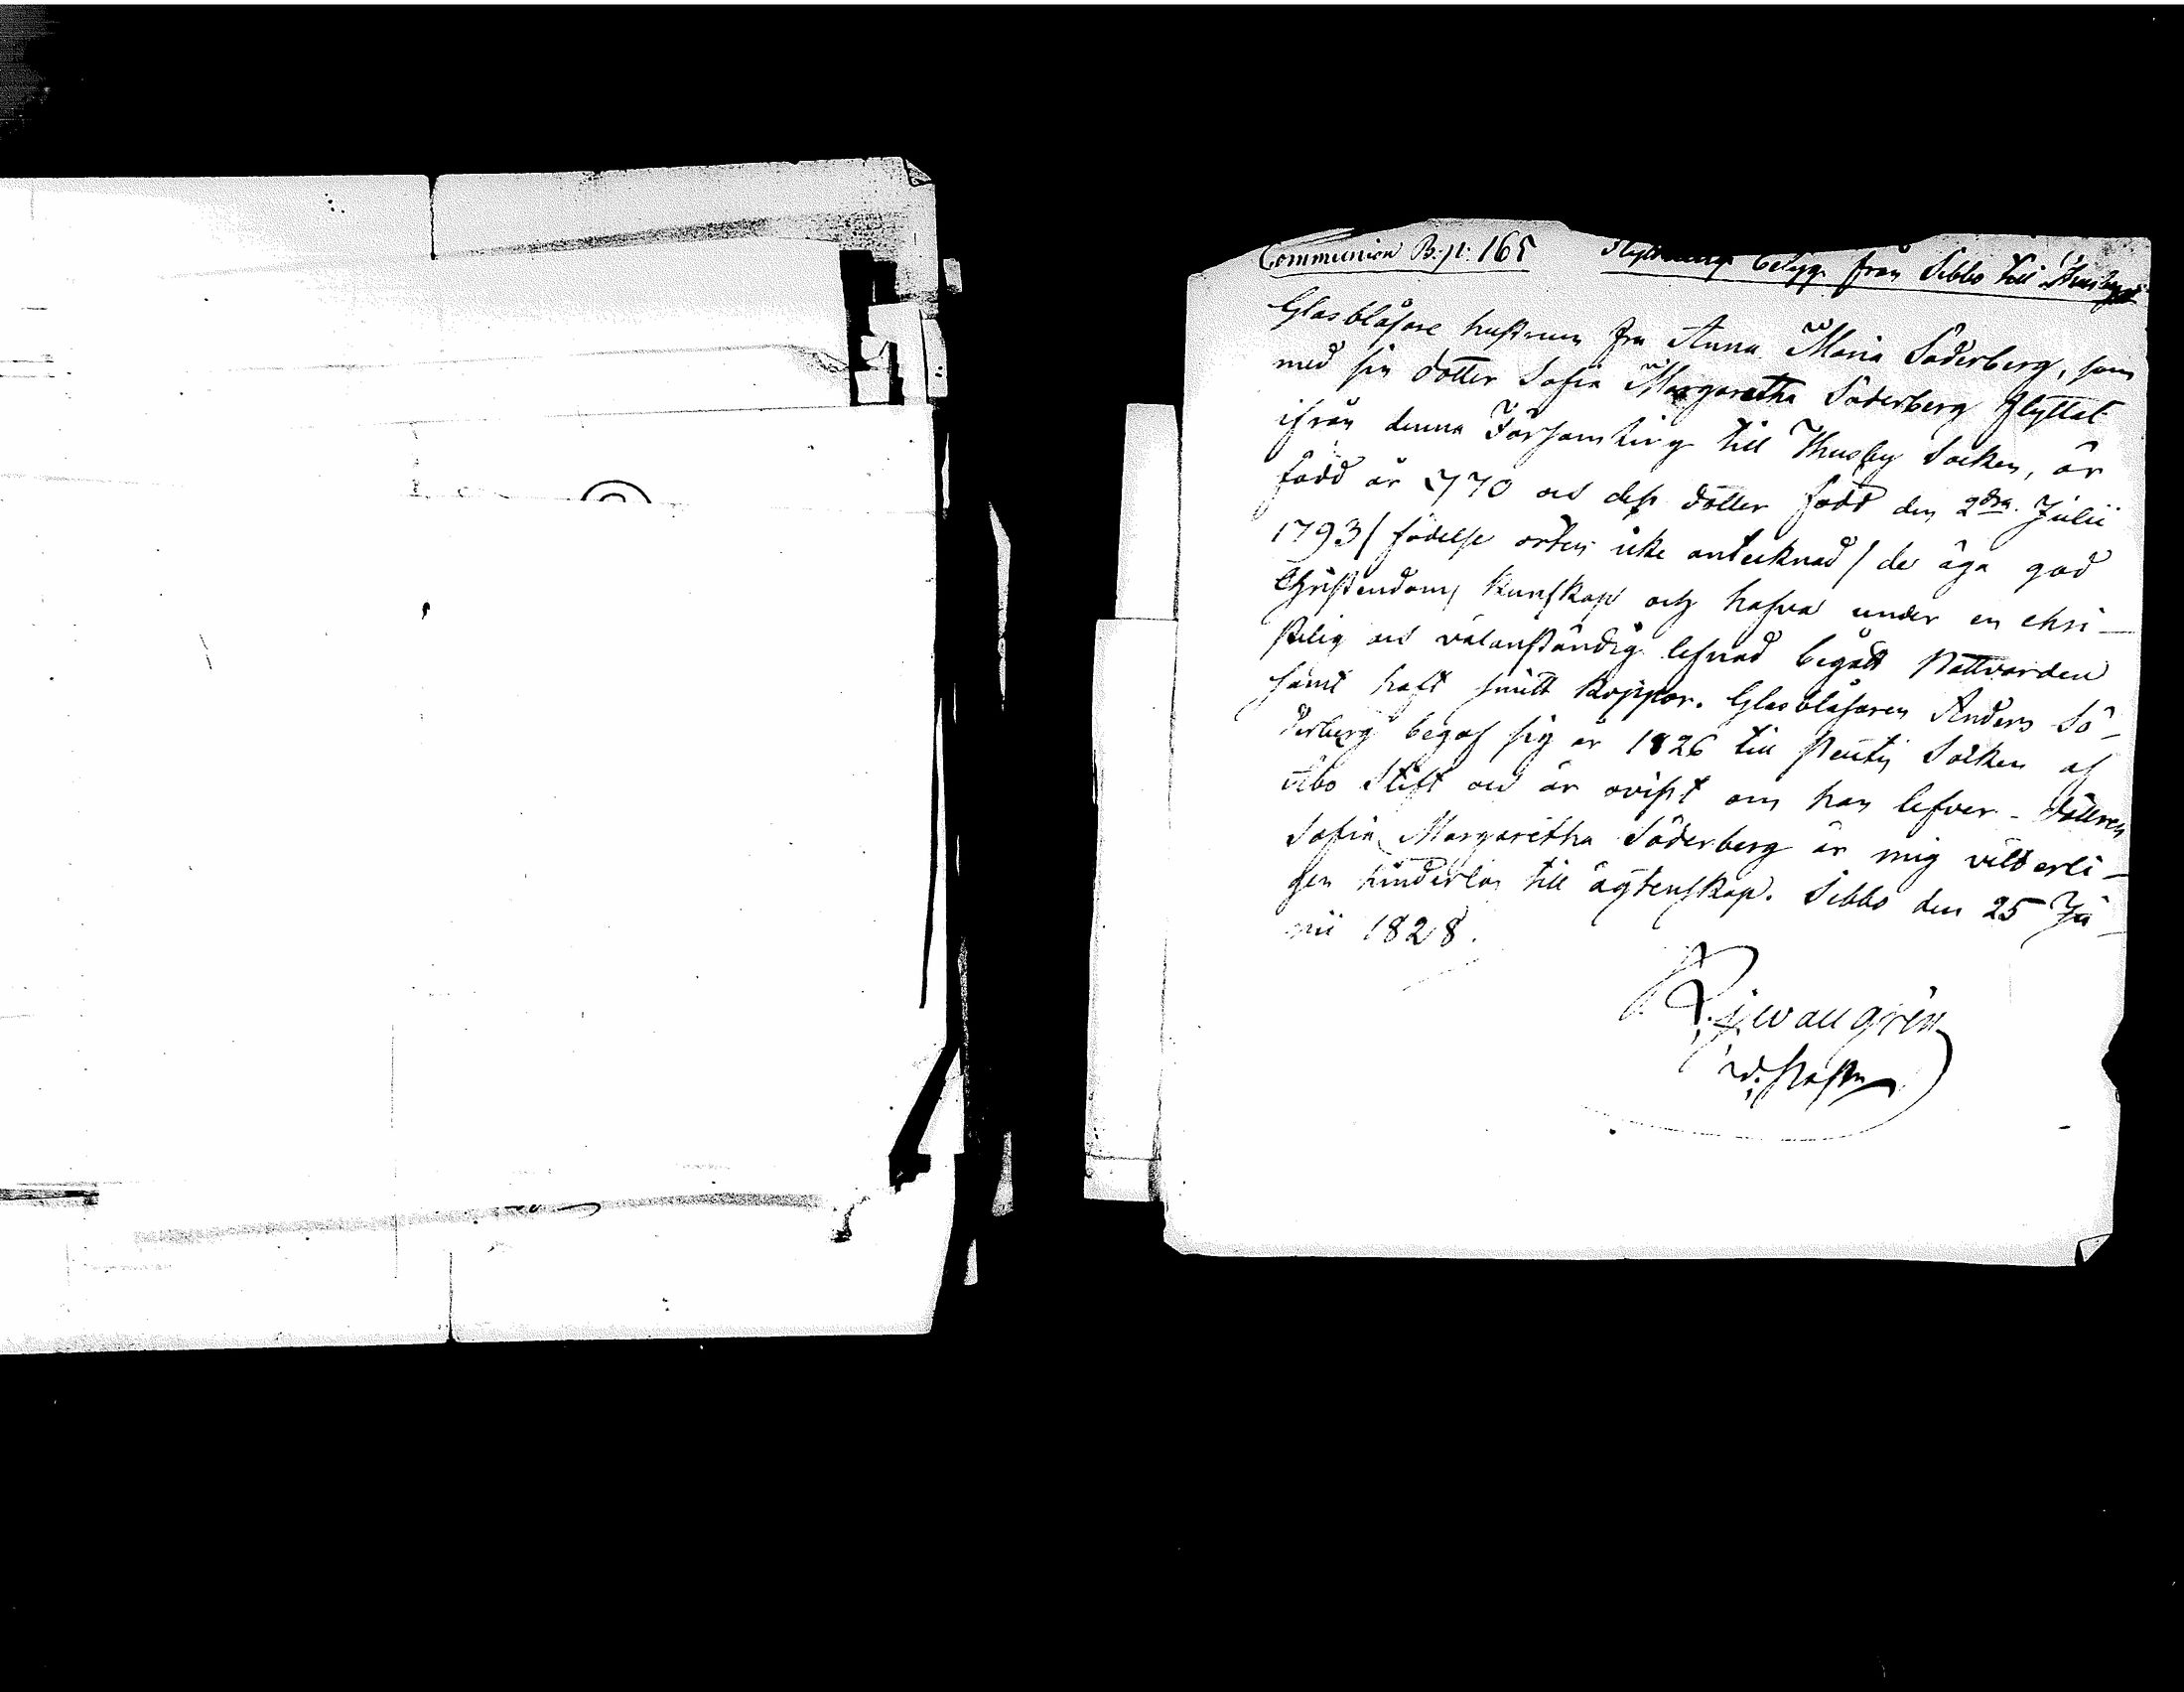 Communion B. p: 165 Flyttnings betyg från Sibbo till Thusby
Glasblåsare hustrun fru Anna Maria Söderberg, som
med sin dotter Sofia Margaretha Söderberg flyttat
ifrån denna Församling till Thusby Socken, är
född år 770 och dess dotter född den 2dra Julii
1793 / födelse orten icke antecknad / de äga god
Christendoms kunskap och hafva under en chri-
stelig och välanständig lefnad begått Nattvarden
samt haft smitt koppor. Glasblåsaren Anders Sö-
derberg begaf sig år 1826 till Socken af
Åbo Stift och är ovisst om han lefver - Dottren
Sofia Margaretha Söderberg är mig vitterli-
gen hinderlös till ägtenskap. Sibbo den 25 Ju-
nii 1828.